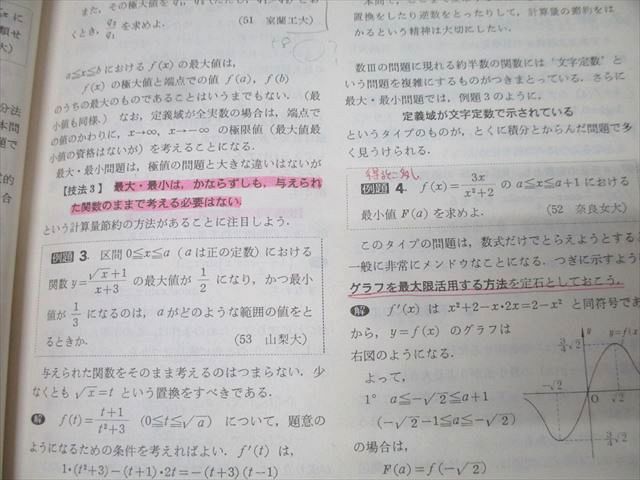 また、その極大値を
くとき, q₃/q₁ を求めよ. (51 室蘭工大)
a≦x≦b における f(x) の最大値は,
f(x) の極大値と端点での値 f(a), f(b)
のうちの最大のものであることはいうまでもない. (最
小値も同様.) なお, 定義域が全実数の場合は, 端点で
の値のかわりに, x→∞, x→−∞ の極限値 (最大値最
小値の資格はないが) を考えることになる.
最大・最小問題は, 極値の問題と大きな違いはないが
【技法3】 最大・最小は, かならずしも, 与えられ
た関数のままで考える必要はない.
という計算量節約の方法があることに注目しよう.
例題 3. 区間 0≦x≦a (a は正の定数) における
関数 y=(√x+1)/(x+3) の最大値が 1/2 になり, かつ最小
値が 1/3 になるのは, a がどのような範囲の値をと
るときか. (53 山梨大)
与えられた関数をそのまま考えるのはつまらない. 少
なくとも √x=t という置換をすべきである.
解 f(t)=(t+1)/(t²+3) (0≦t≦√a) について, 題意の
ようになるための条件を考えればよい. f′(t) は,
1・(t²+3)−(t+1)・2t=−(t+3)(t−1)
置換をしたり逆数をとったりして, 計算量の節約をは
かるという精神は大切にしたい.
数Ⅲの問題に現れる約半数の関数には‘文字定数’と
いう問題を複雑にするものがつきまとっている. さらに
最大・最小問題では, 例題3のように,
定義域が文字定数で示されている
というタイプのものが, とくに積分とからんだ問題で多
く見うけられる.
例題 4. f(x)=3x/(x²+2) の a≦x≦a+1 における
最小値 F(a) を求めよ. (52 奈良女大)
このタイプの問題は, 数式だけでとらえようとすると
一般に非常にメンドウなことになる. つぎに示すように
グラフを最大限活用する方法を定石としておこう.
解 f′(x) は x²+2−x・2x=2−x² と同符号であ
から, y=f(x) のグラフは
右図のようになる.
よって,
1° a≦−√2≦a+1
(−√2−1≦a≦−√2)
の場合は,
F(a)=f(−√2)
y
3/4√2
−√2
O
√2
−3/4√2